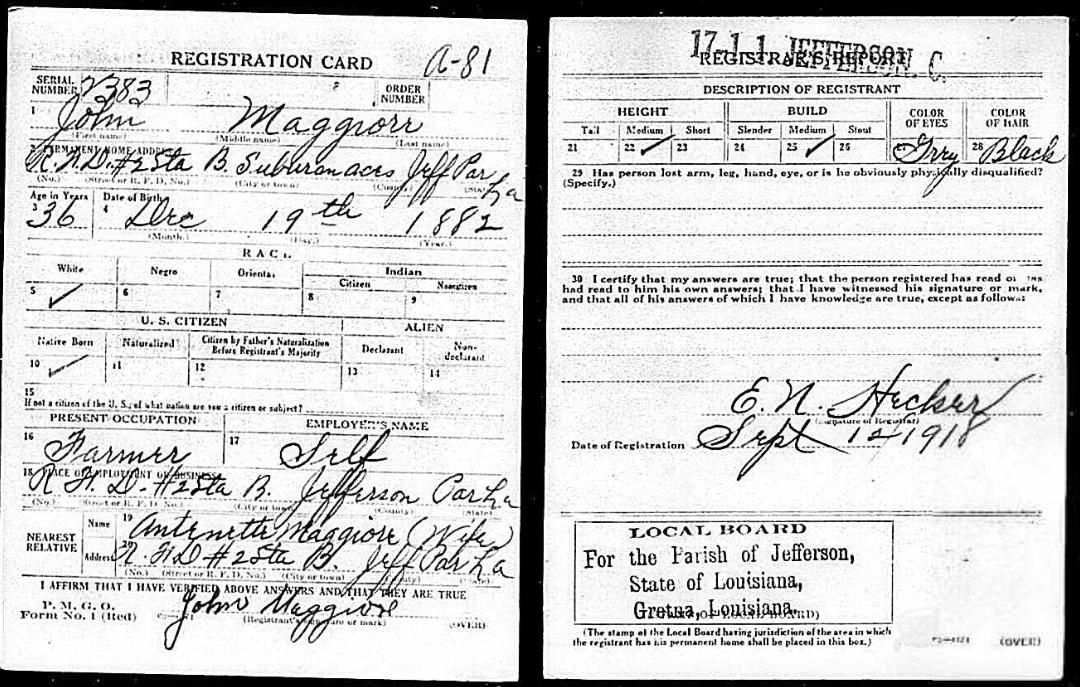 REGISTRATION CARD A-81
SERIAL NUMBER 2383 ORDER NUMBER
1 John Maggiore
(First name) (Middle name) (Last name)
2 PERMANENT HOME ADDRESS
R.F.D. #2 Sta B. Jeff Par La
(No.) (Street or R. F. D. No.) (City or town) (County) (State)
Age in Years Date of Birth
3 36 4 Dec 19th 1882
(Month.) (Day.) (Year.)
RACE
White Negro Oriental Indian
Citizen Noncitizen
5 ✓ 6 7 8 9
U. S. CITIZEN ALIEN
Native Born Naturalized Citizen by Father's Naturalization Before Registrant's Majority Declarant Non-declarant
10 ✓ 11 12 13 14
15
If not a citizen of the U. S., of what nation are you a citizen or subject?
PRESENT OCCUPATION EMPLOYER'S NAME
16 Farmer 17 Self
18 PLACE OF EMPLOYMENT OR BUSINESS
R F. D- #2 Sta B. Jefferson Par La
(No.) (Street or R. F. D. No.) (City or town) (County) (State)
NEAREST RELATIVE
Name 19 Antenette Maggiore (Wife)
Address 20 R. F. D #2 Sta B. Jeff Par La
(No.) (Street or R. F. D. No.) (City or town) (County) (State)
I AFFIRM THAT I HAVE VERIFIED ABOVE ANSWERS AND THAT THEY ARE TRUE
P. M. G. O.
Form No. 1 (Red) John Maggiore
(Registrant's signature or mark) (OVER)
17 1 1 JEFFERSON. C.
REGISTRAR'S REPORT
DESCRIPTION OF REGISTRANT
HEIGHT BUILD COLOR OF EYES COLOR OF HAIR
Tall Medium Short Slender Medium Stout
21 22 ✓ 23 24 25 ✓ 26 Grey 28 Black
29 Has person lost arm, leg, hand, eye, or is he obviously physically disqualified?
(Specify.)
30 I certify that my answers are true; that the person registered has read or has
had read to him his own answers; that I have witnessed his signature or mark,
and that all of his answers of which I have knowledge are true, except as follows:
E. N. Hecker
(Signature of Registrar)
Date of Registration Sept 12 1918
LOCAL BOARD
For the Parish of Jefferson,
State of Louisiana,
Gretna, Louisiana.
(STAMP OF LOCAL BOARD)
(The stamp of the Local Board having jurisdiction of the area in which
the registrant has his permanent home shall be placed in this box.)
(OVER)